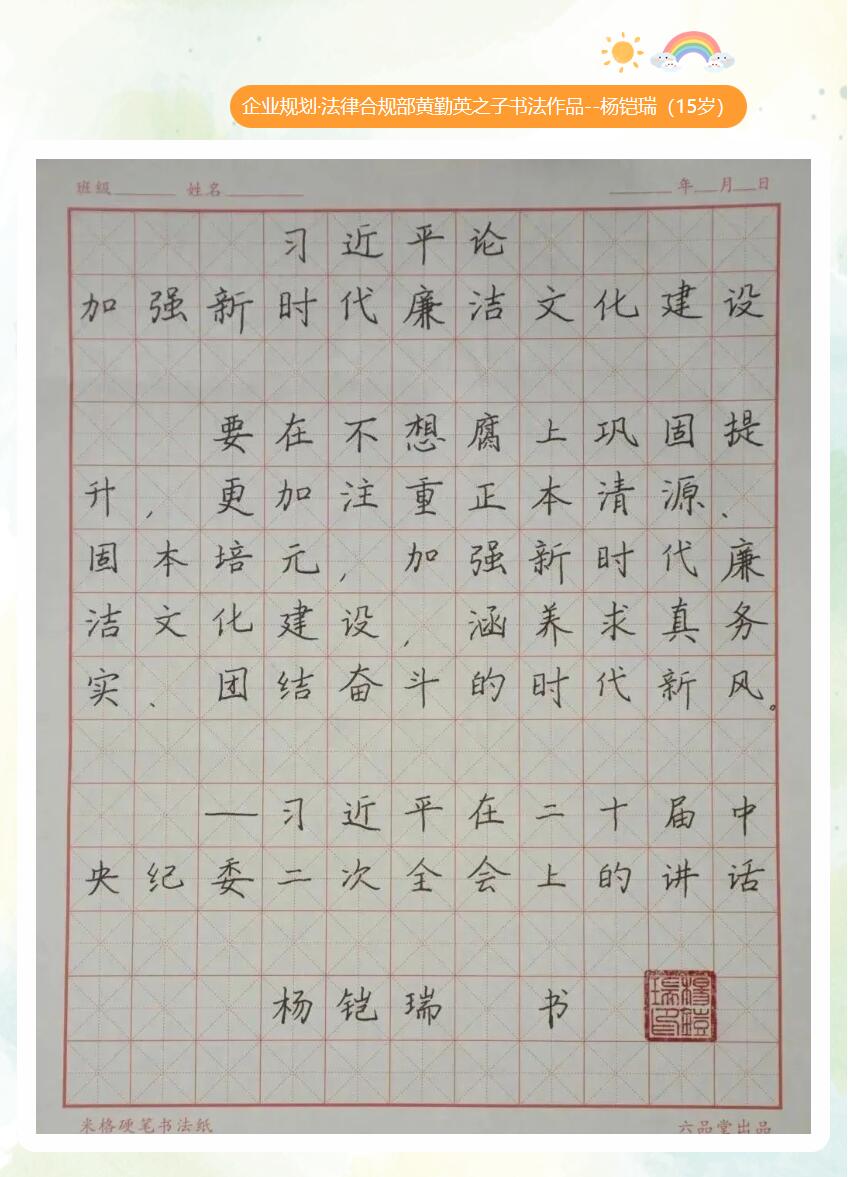 企业规划·法律合规部黄勤英之子书法作品--杨铠瑞（15岁）
班级 姓名 年 月 日
习近平论
加强新时代廉洁文化建设
要在不想腐上巩固提
升，更加注重正本清源、
固本培元，加强新时代廉
洁文化建设，涵养求真务
实、团结奋斗的时代新风。
—习近平在二十届中
央纪委二次全会上的讲话
杨铠瑞 书
杨铠瑞印
米格硬笔书法纸 六品堂出品